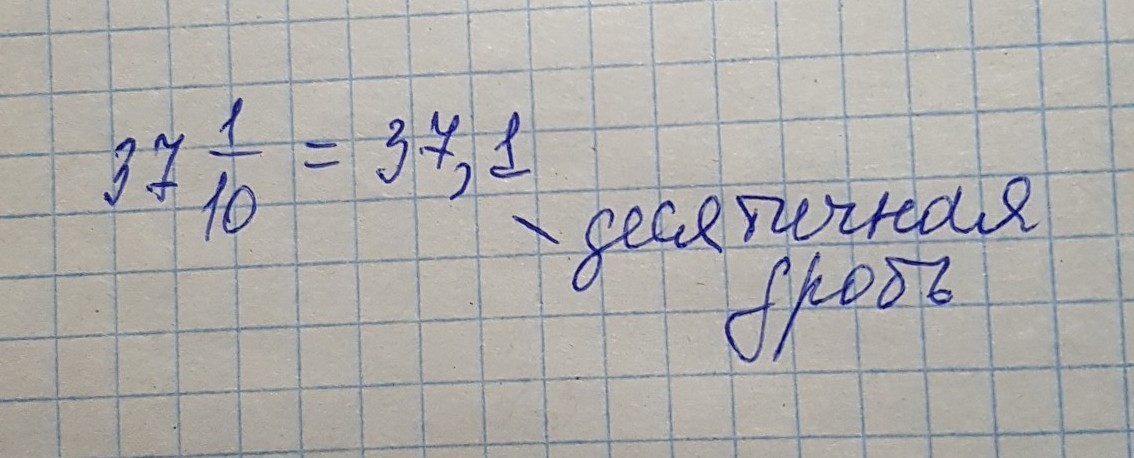 37 1/10 = 37,1
десятичная
дробь